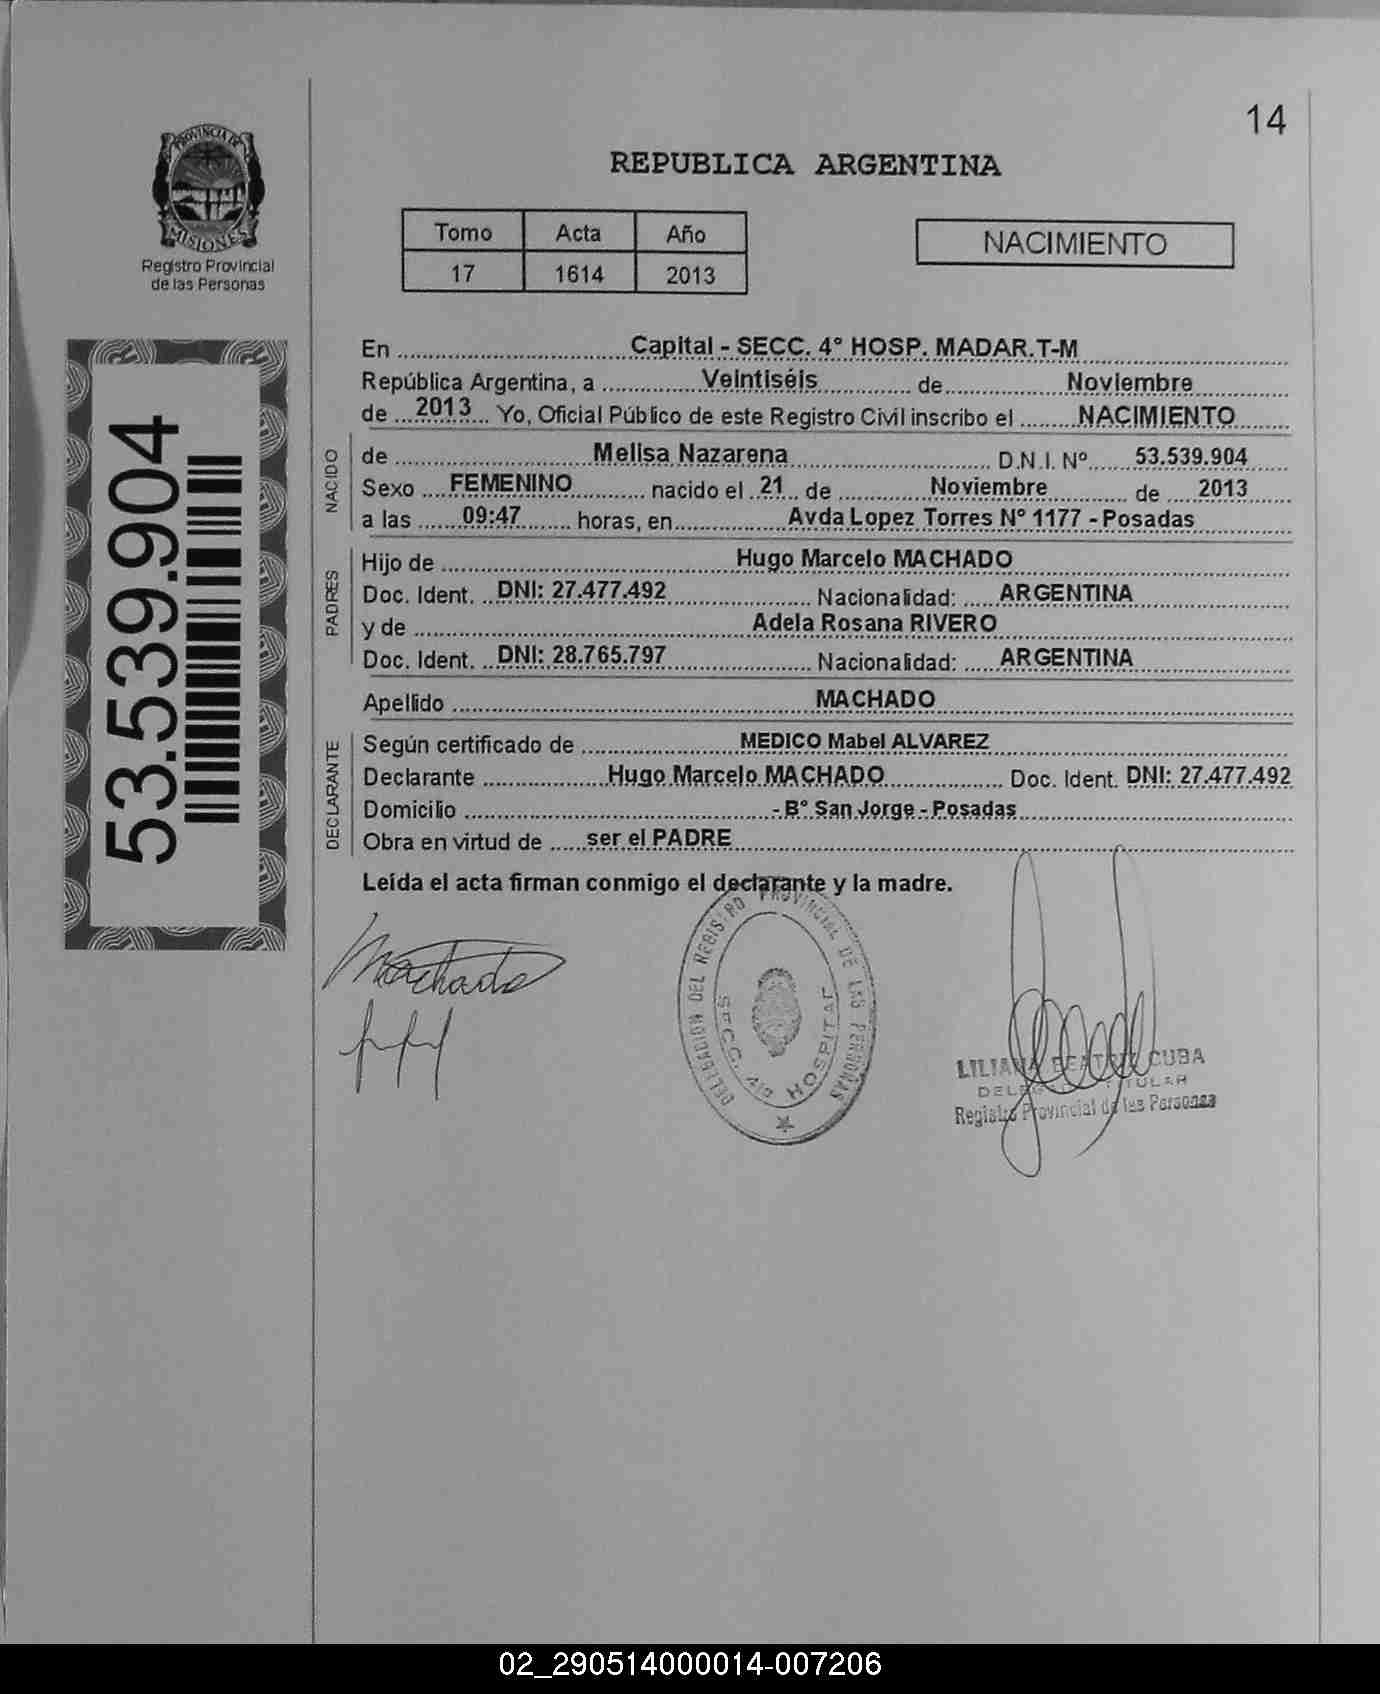 14
PROVINCIA DE
MISIONES
Registro Provincial
de las Personas
REPUBLICA ARGENTINA
Tomo Acta Año
17 1614 2013
NACIMIENTO
53.539.904
En Capital - SECC. 4° HOSP. MADAR.T-M
República Argentina, a Veintiséis de Noviembre
de 2013 Yo, Oficial Público de este Registro Civil inscribo el NACIMIENTO
NACIDO
de Melisa Nazarena D.N.I. Nº 53.539.904
Sexo FEMENINO nacido el 21 de Noviembre de 2013
a las 09:47 horas, en Avda Lopez Torres N° 1177 - Posadas
PADRES
Hijo de Hugo Marcelo MACHADO
Doc. Ident. DNI: 27.477.492 Nacionalidad: ARGENTINA
y de Adela Rosana RIVERO
Doc. Ident. DNI: 28.765.797 Nacionalidad: ARGENTINA
Apellido MACHADO
DECLARANTE
Según certificado de MEDICO Mabel ALVAREZ
Declarante Hugo Marcelo MACHADO Doc. Ident. DNI: 27.477.492
Domicilio - B° San Jorge - Posadas
Obra en virtud de ser el PADRE
Leída el acta firman conmigo el declarante y la madre.
Machado
DELEGACION DEL REGISTRO PROVINCIAL DE LAS PERSONAS
SECC. 4ta HOSPITAL
LILIANA BEATRIZ CUBA
DELEGADA TITULAR
Registro Provincial de las Personas
02_290514000014-007206